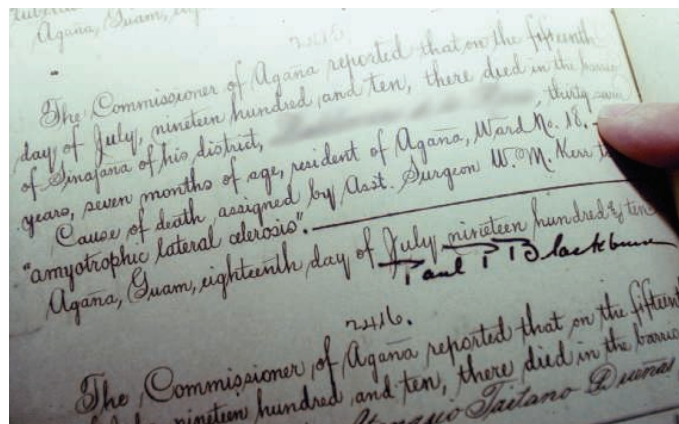 Agaña, Guam,
2415.
The Commissioner of Agaña reported that on the fifteenth
day of July, nineteen hundred, and ten, there died in the barrio
of Sinajaña of his district, , thirty
years, seven months of age, resident of Agaña, Ward No. 18.
Cause of death assigned by Asst. Surgeon W. M. Kerr
"amyotrophic lateral clerosis".
Agaña, Guam, eighteenth day of July nineteen hundred & ten
Paul P Blackburn
2416.
The Commissioner of Agaña reported that on the fifteenth
nineteen hundred, and ten, there died in the barrio
Taitano Dueñas